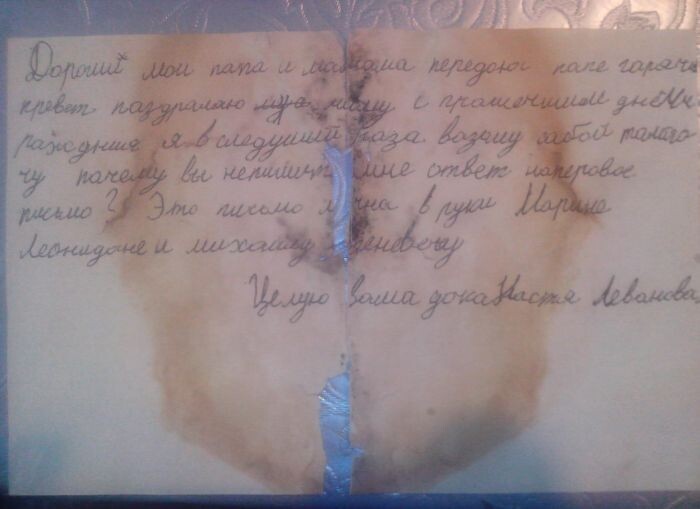 Дорогий мои папа и мамама передоюї папе гаряче
превет паздралаю маму с прашечшим днём
рахдния я в следуший раза вазчу забой
чу пачему вы непишите мне ответ наперовое
письмо? Это письмо в руки Марине
Леонидане и михаилу
Целую Вама дока Настя Леванова